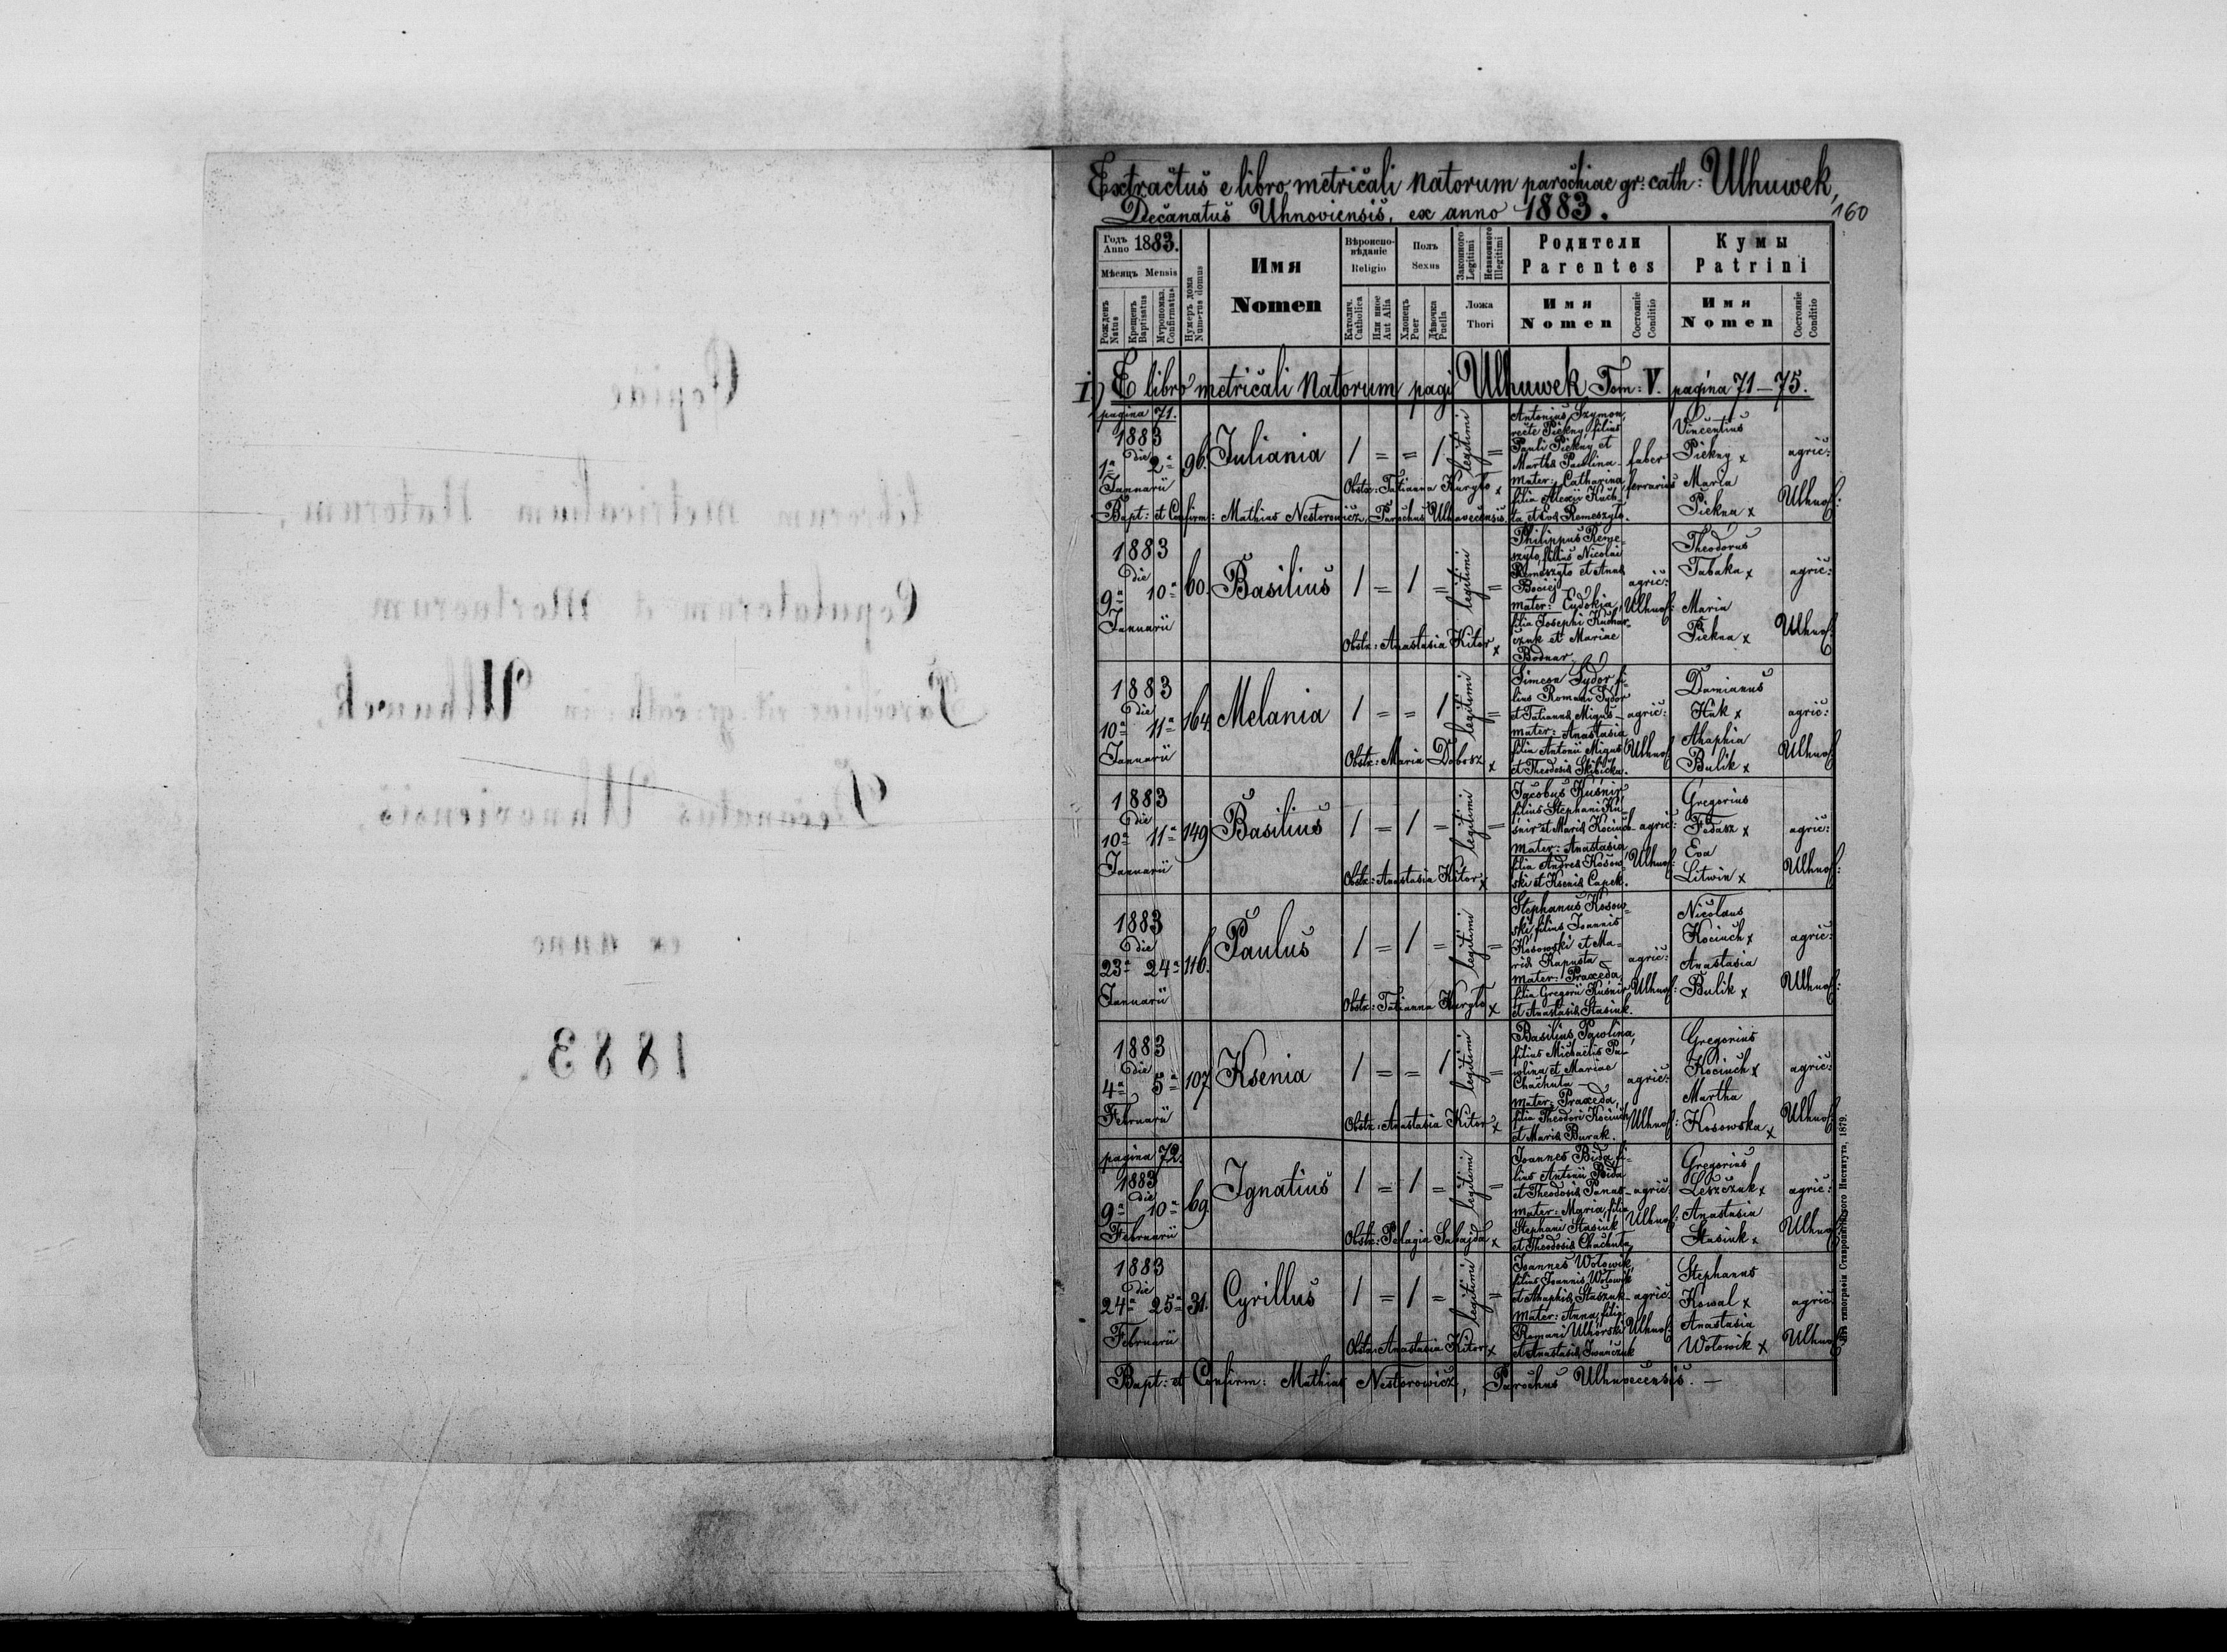 Copiae
librorum metricalium Natorum,
Copulatorum et Mortuorum
Parochiae rit. gr: cath: in Ulhuwek,
Decanatus Uhnoviensis,
ex anno
1883.
Extractus e libro metricali Natorum parochiae gr: cath: Ulhuwek,
Decanatus Uhnoviensis, ex anno 1883.
160
Годъ Anno 1883.
Мѣсяцъ Mensis
Рожденъ Natus
Крещенъ Baptisatus
Муропомаз. Confirmatus
Нумеръ дома Numerus domus
Имя
Nomen
Вѣроиспо-
вѣданіе
Religio
Католич. Catholica
Или иное Aut Alia
Полъ
Sexus
Хлопецъ Puer
Дѣвочка Puella
Законного Legitimi
Незаконного Illegitimi
Ложа
Thori
Родители
Parentes
Имя
Nomen
Состояніе Conditio
Кумы
Patrini
Имя
Nomen
Состояніе Conditio
I) E libro metricali Natorum pagi Ulhuwek Tom: V. pagina 71–75.
pagina 71.
1883
die
1ª 2ª
Januarii
96.
Juliania
1 = = 1 legitimi =
Antonius Szymon,
recte Piekny, filius
Pauli Piekny et
Marthæ Pawlina –
mater: Catharina
filia Alexii Kuch-
ta et Evæ Remeszyło.
faber
ferrarius
Vincentius
Piekny x
Maria
Piekna x
agric:
Ulhuf:
Obstx: Tatianna Kuryło x
Bapt: et Confirm: Mathias Nestorowicz, Parochus Ulhuvecensis.
1883
die
9ª 10ª
Januarii
60.
Basilius
1 = 1 = legitimi =
Philippus Reme-
szyło, filius Nicolai
Remeszyło et Annæ
Bociej
mater: Eudokia,
filia Josephi Kuchar-
czuk et Mariae
Bodnar.
agric:
Ulhuf:
Theodorus
Tabaka x
Maria
Piekna x
agric:
Ulhuf:
Obstx: Anastasia Kitor x
1883
die
10ª 11ª
Januarii
164.
Melania
1 = = 1 legitimi =
Simeon Sydor fi-
lius Romani Sydor
et Tatiannæ Migus –
mater: Anastasia
filia Antonii Migus
et Theodosiæ Skibicka.
agric:
Ulhuf:
Damianus
Huk x
Ahaphia
Bulik x
agric:
Ulhuf:
Obstx: Maria Dobosz x
1883
die
10ª 11ª
Januarii
149
Basilius
1 = 1 = legitimi =
Jacobus Kuśnir
filius Stephani Ku-
śnir et Mariæ Kociuch –
mater: Anastasia
filia Andreæ Kosow-
ski et Kseniæ Capek.
agric:
Ulhuf:
Gregorius
Fedasz x
Eva
Litwin x
agric:
Ulhuf:
Obstx: Anastasia Kitor x
1883
die
23ª 24ª
Januarii
116.
Paulus
1 = 1 = legitimi =
Stephanus Kosow-
ski, filius Joannis
Kosowski et Ma-
riæ Kapusta –
mater: Praxeda,
filia Gregorii Kuśnir
et Anastasiæ Stasiuk.
agric:
Ulhuf:
Nicolaus
Kociuch x
Anastasia
Bulik x
agric:
Ulhuf:
Obstx: Tatianna Kuryło x
1883
die
4ª 5ª
Februarii
107
Ksenia
1 = = 1 legitimi =
Basilius Pawlina,
filius Michaëlis Pa-
wlina et Mariae
Chachuta –
mater: Praxeda,
filia Theodori Kociuch
et Mariæ Burak.
agric:
Ulhuf:
Gregorius
Kociuch x
Martha
Kosowska x
agric:
Ulhuf:
Obstx: Anastasia Kitor x
pagina 72.
1883
die
9ª 10ª
Februarii
69.
Ignatius
1 = 1 = legitimi =
Joannes Bida, fi-
lius Antonii Bida
et Theodosiæ Panas –
mater: Maria, filia
Stephani Stasiuk
et Theodosiæ Chachuta.
agric:
Ulhuf:
Gregorius
Leszczuk x
Anastasia
Stasiuk x
agric:
Ulhuf:
Obstx: Pelagia Sabajda x
1883
die
24ª 25ª
Februarii
31.
Cyrillus
1 = 1 = legitimi =
Joannes Wołowik,
filius Joannis Wołowik
et Ahaphiæ Staszuk –
mater: Anna, filia
Romani Ulhorski
et Anastasiæ Iwańczuk
agric:
Ulhuf:
Stephanus
Kowal x
Anastasia
Wołowik x
agric:
Ulhuf:
Obstx: Anastasia Kitor x
Bapt: et Confirm: Mathias Nestorowicz, Parochus Ulhuvecensis. –
Изъ типографіи Ставропигійского Института, 1879.